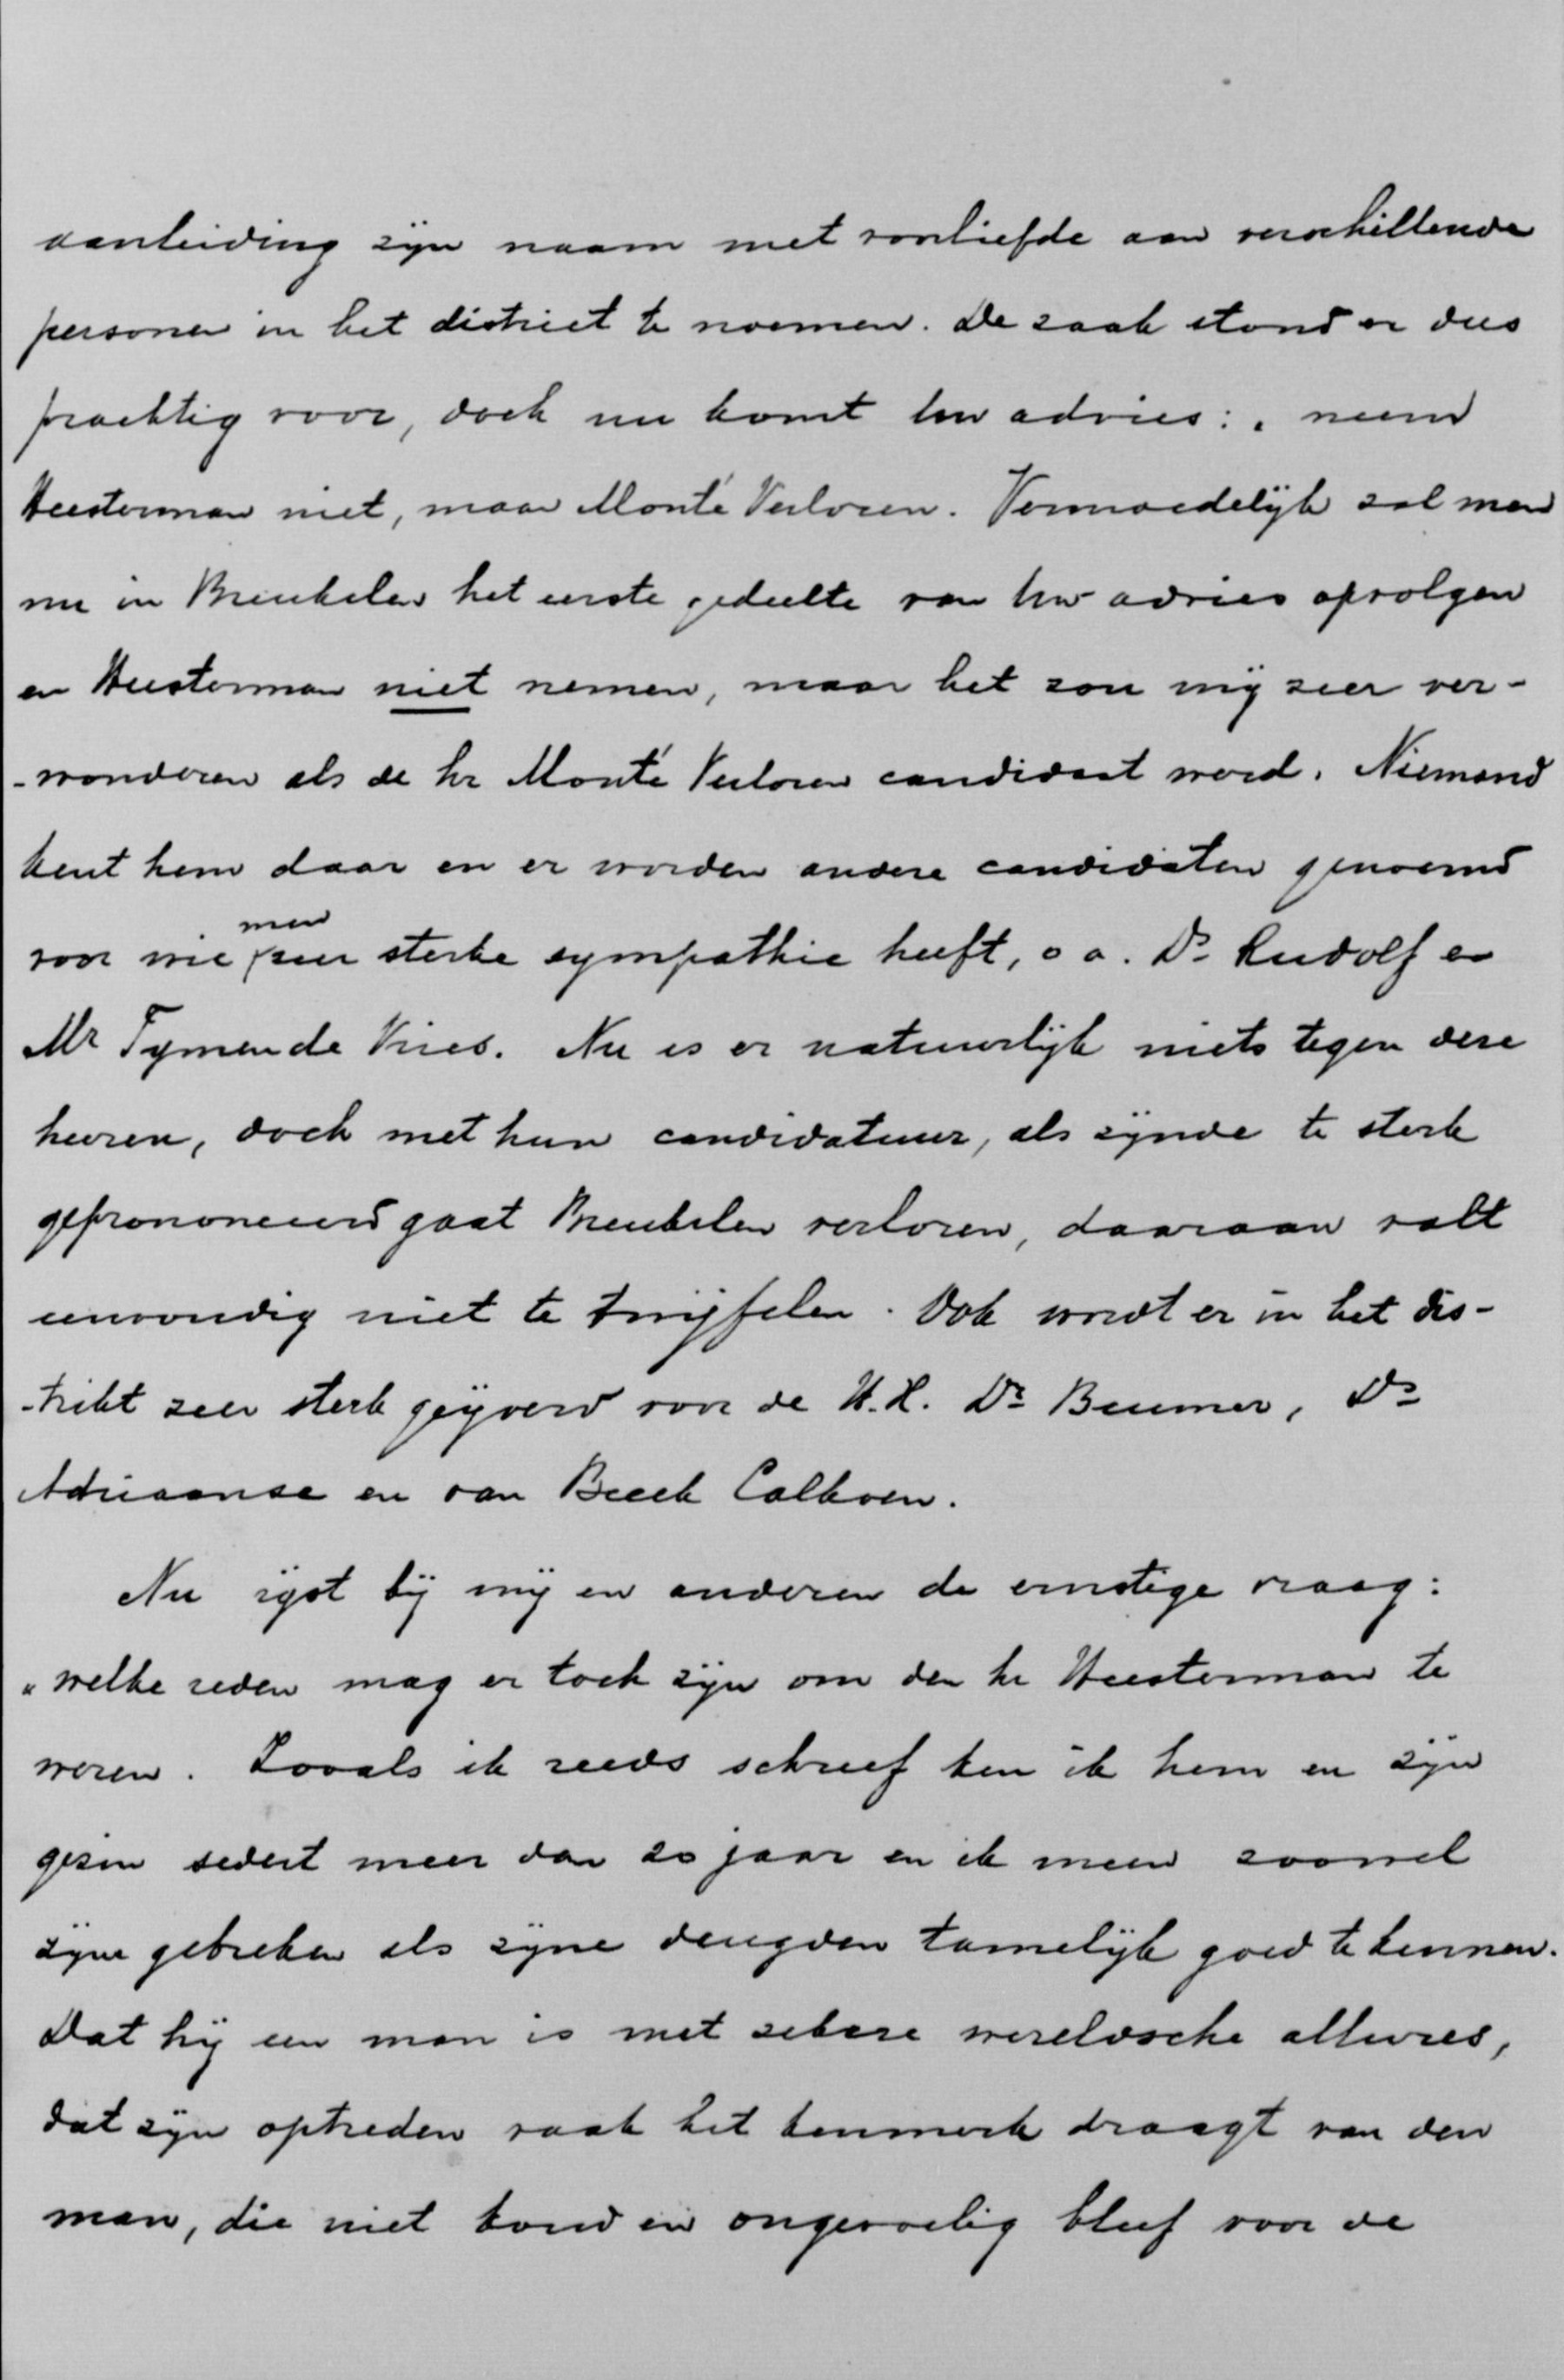 aanleiding zijn naam met voorliefde aan verschillende
personen in het district te noemen. De zaak stond er dus
prachtig voor, doch nu komt Uw advies: „ neem
Heesterman niet, maar Monté Verloren. Vermoedelijk zal men
nu in Breukelen het eerste gedeelte van Uw advies opvolgen
en Heesterman niet nemen, maar het zou mij zeer ver-
-wonderen als de hr Monté Verloren candidaat werd. Niemand
kent hem daar en er worden andere candidaten genoemd
voor wie men zeer sterke sympathie heeft, o a. Ds Rudolf en
Mr Tymen de Vries. Nu is er natuurlijk niets tegen deze
heeren, doch met hun candidatuur, als zijnde te sterk
geprononceerd gaat Breukelen verloren, daaraan valt
eenvoudig niet te twijfelen. Ook wordt er in het dis-
-trikt zeer sterk geijverd voor de H.H. Dr Beumer, Ds
Adriaanse en van Beeck Calkoen.
Nu rijst bij mij en anderen de ernstige vraag:
„welke reden mag er toch zijn om den hr Heesterman te
weren. Zooals ik reeds schreef ken ik hem en zijn
gezin sedert meer dan 20 jaar en ik meen zoowel
zijne gebreken als zijne deugden tamelijk goed te kennen.
Dat hij een man is met zekere wereldsche allures,
dat zijn optreden vaak het kenmerk draagt van den
man, die niet koud en ongevoelig bleef voor de